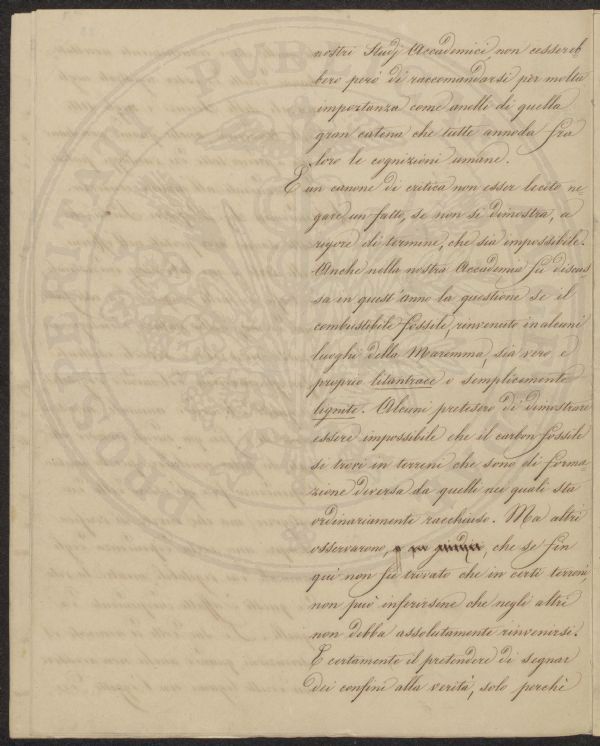 nostri Studj Accademici, non cessereb
bero però di raccomandarsi per molta
importanza come anelli di quella
gran catena che tutte annoda fra
loro le cognizioni umane.
È un canone di critica non esser lecito ne
gare un fatto, se non si dimostra, a
rigore di termine, che sia impossibile.
Anche nella nostra Accademia fu discus
sa in quest'anno la questione se il
combustibile fossile, rinvenuto in alcuni
luoghi della Maremma, sia vero, e
proprio litantrace o semplicemente
lignite. Alcuni pretesero di dimostrare
essere impossibile che il carbon fossile
si trovi in terreni che sono di forma=
zione diversa da quelli nei quali sta
ordinariamente racchiuso. Ma altri
osservarono, che se fin
qui non fu trovato che in certi terreni
non può inferirsene che negli altri
non debba assolutamente rinvenirsi.
E certamente il pretendere di segnar
dei confini alla verità, solo perchè
PUBL
PROSPERITATI